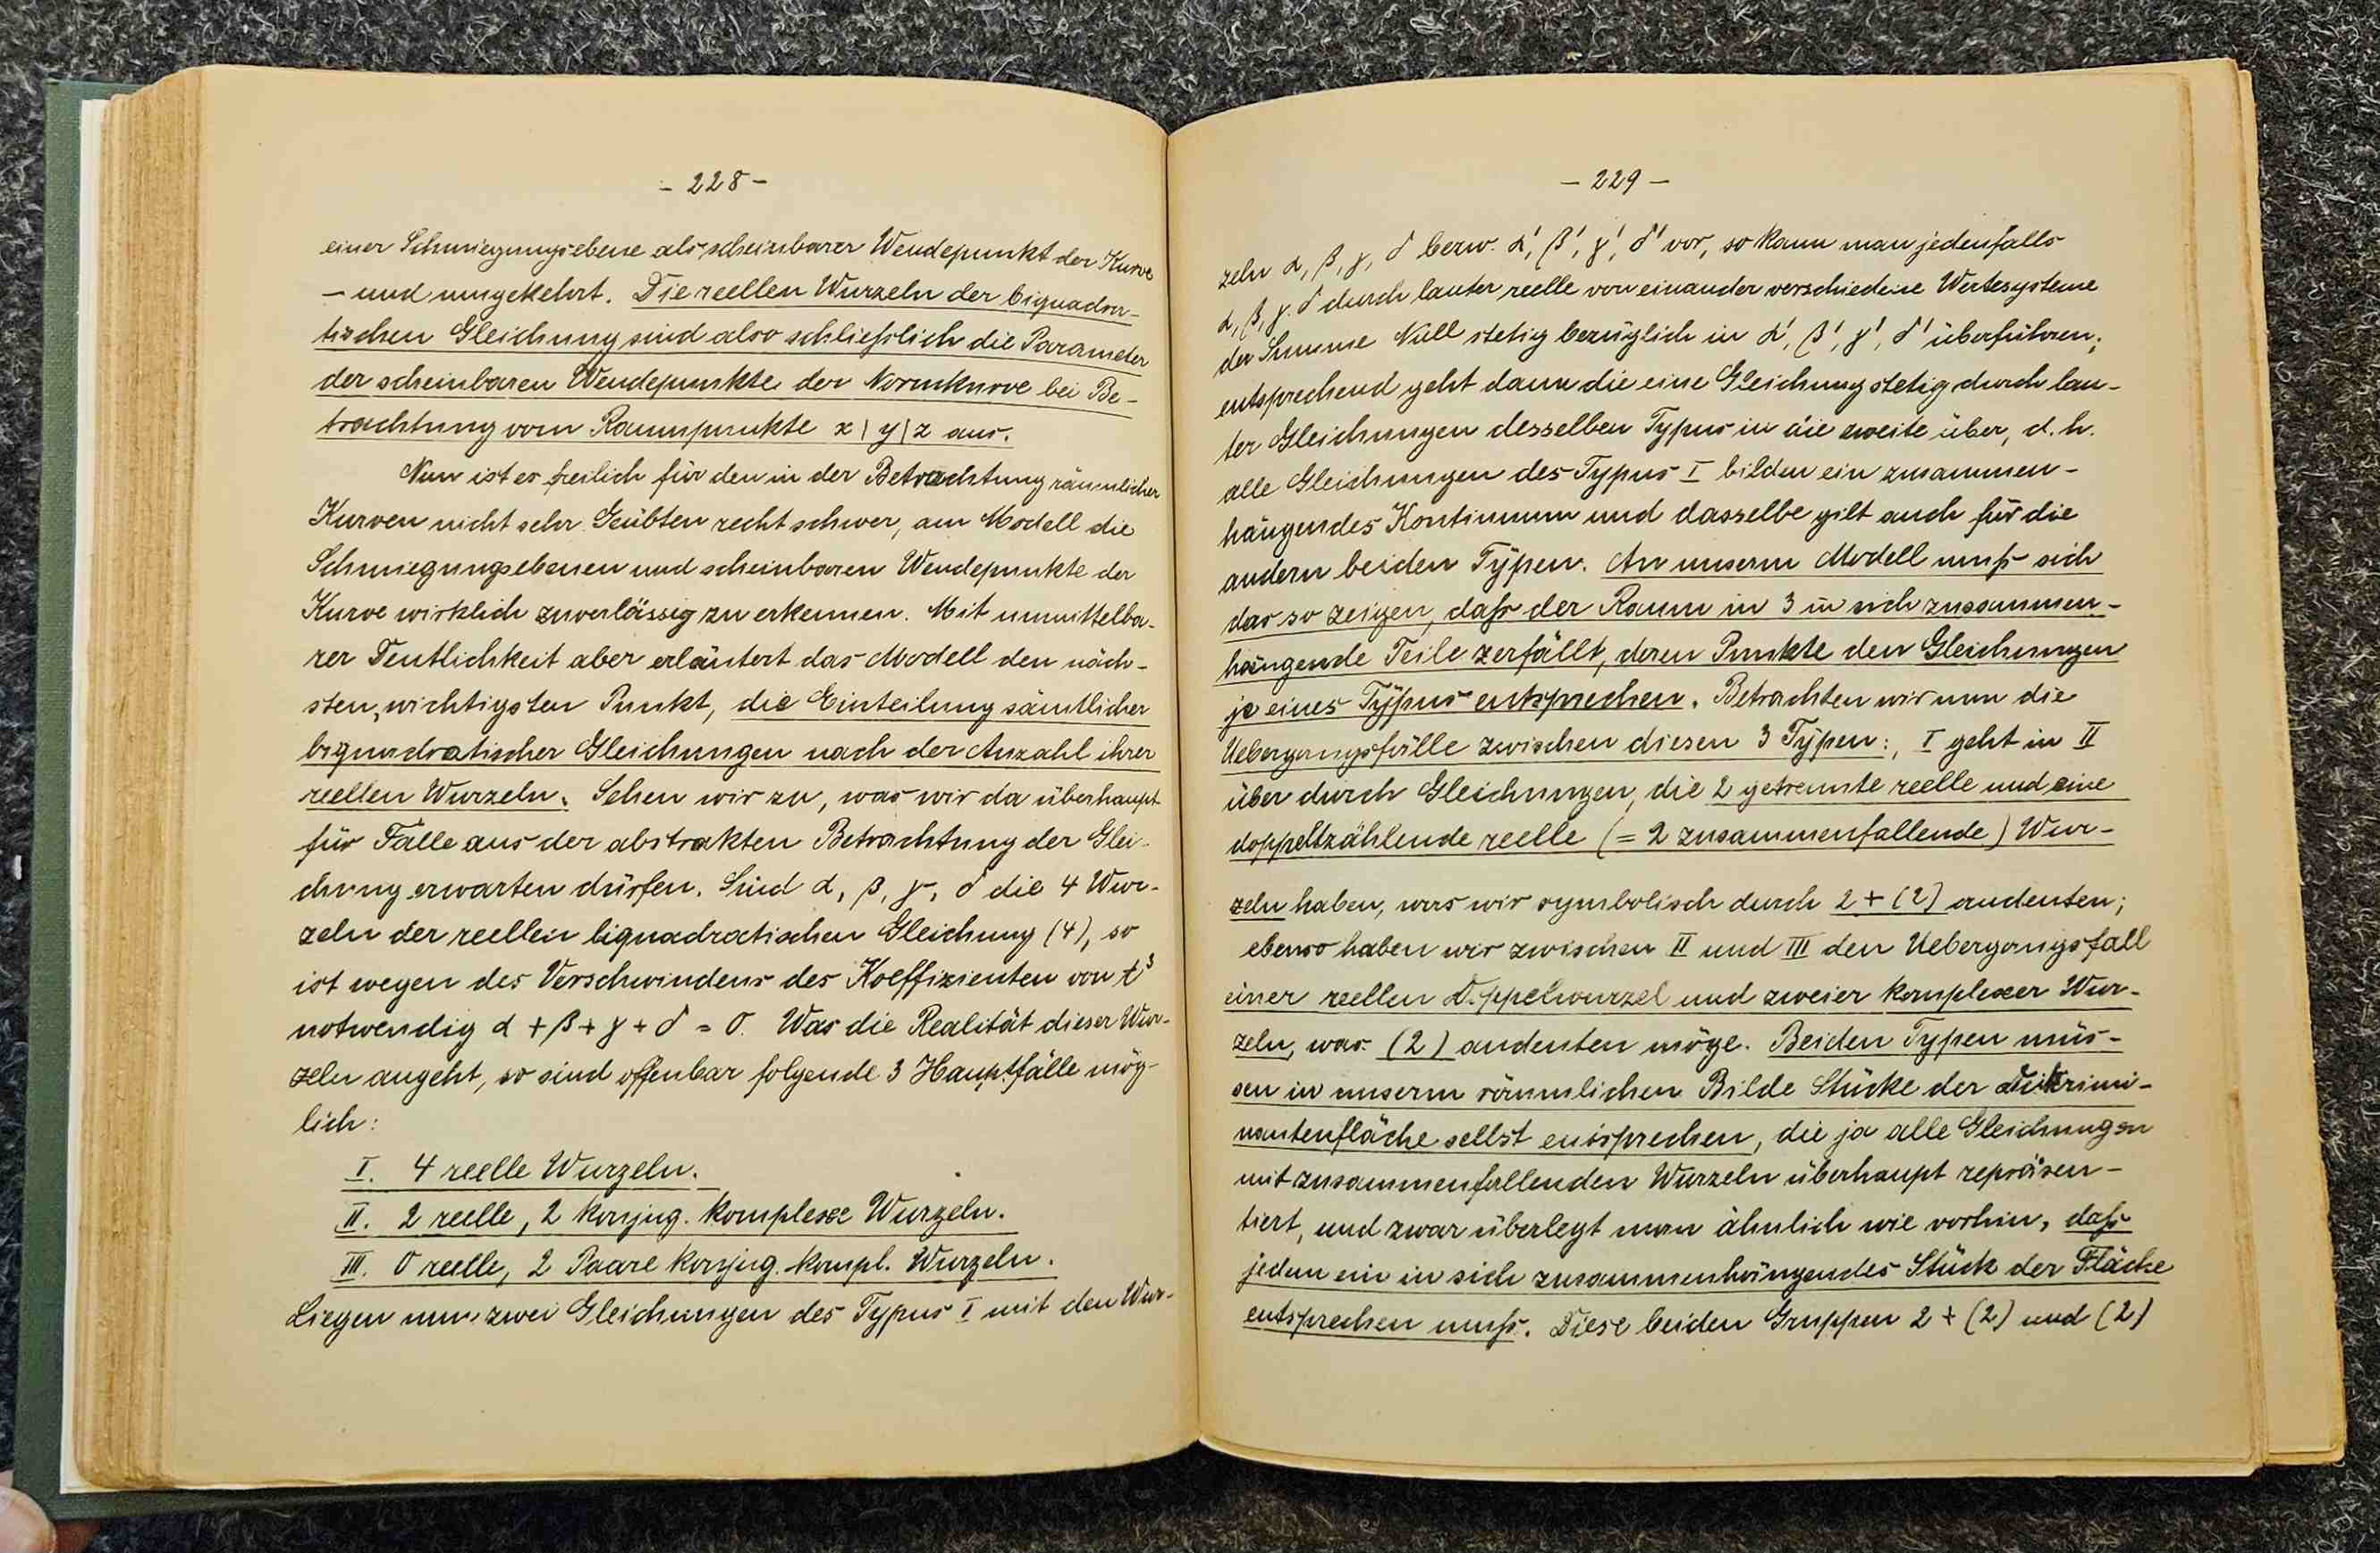 - 228 -
einer Schmiegungsebene als scheinbarer Wendepunkt der Kurve
- und umgekehrt. Die reellen Wurzeln der biquadra-
tischen Gleichung sind also schließlich die Parameter
der scheinbaren Wendepunkte der Normkurve bei Be-
trachtung vom Raumpunkte x | y | z aus.
Nun ist es freilich für den in der Betrachtung räumlicher
Kurven nicht sehr Geübten recht schwer, am Modell die
Schmiegungsebenen und scheinbaren Wendepunkte der
Kurve wirklich zuverlässig zu erkennen. Mit unmittelba-
rer Deutlichkeit aber erläutert das Modell den näch-
sten, wichtigsten Punkt, die Einteilung sämtlicher
biquadratischer Gleichungen nach der Anzahl ihrer
reellen Wurzeln. Sehen wir zu, was wir da überhaupt
für Fälle aus der abstrakten Betrachtung der Glei-
chung erwarten dürfen. Sind α, β, γ, δ die 4 Wur-
zeln der reellen biquadratischen Gleichung (4), so
ist wegen des Verschwindens des Koeffizienten von t³
notwendig α + β + γ + δ = 0. Was die Realität dieser Wur-
zeln angeht, so sind offenbar folgende 3 Hauptfälle mög-
lich:
I. 4 reelle Wurzeln.
II. 2 reelle, 2 konjug. komplexe Wurzeln.
III. 0 reelle, 2 Paare konjug. kompl. Wurzeln.
Liegen nun zwei Gleichungen des Typus I mit den Wur-
- 229 -
zeln α, β, γ, δ bezw. α', β', γ', δ' vor, so kann man jedenfalls
α, β, γ, δ durch lauter reelle von einander verschiedene Wertesysteme
der Summe Null stetig bezüglich in α', β', γ', δ' überführen;
entsprechend geht dann die eine Gleichung stetig durch lau-
ter Gleichungen desselben Typus in die zweite über, d. h.
alle Gleichungen des Typus I bilden ein zusammen-
hängendes Kontinuum und dasselbe gilt auch für die
andern beiden Typen. An unserm Modell muß sich
das so zeigen, daß der Raum in 3 in sich zusammen-
hängende Teile zerfällt, deren Punkte den Gleichungen
je eines Typus entsprechen. Betrachten wir nun die
Uebergangsfälle zwischen diesen 3 Typen: I geht in II
über durch Gleichungen, die 2 getrennte reelle und eine
doppeltzählende reelle (= 2 zusammenfallende) Wur-
zeln haben, was wir symbolisch durch 2 + (2) andeuten;
ebenso haben wir zwischen II und III den Uebergangsfall
einer reellen Doppelwurzel und zweier komplexer Wur-
zeln, was (2) andeuten möge. Beiden Typen müs-
sen in unserm räumlichen Bilde Stücke der Diskrimi-
nantenfläche selbst entsprechen, die ja alle Gleichungen
mit zusammenfallenden Wurzeln überhaupt repräsen-
tiert, und zwar überlegt man ähnlich wie vorhin, daß
jedem ein in sich zusammenhängendes Stück der Fläche
entsprechen muß. Diese beiden Gruppen 2 + (2) und (2)